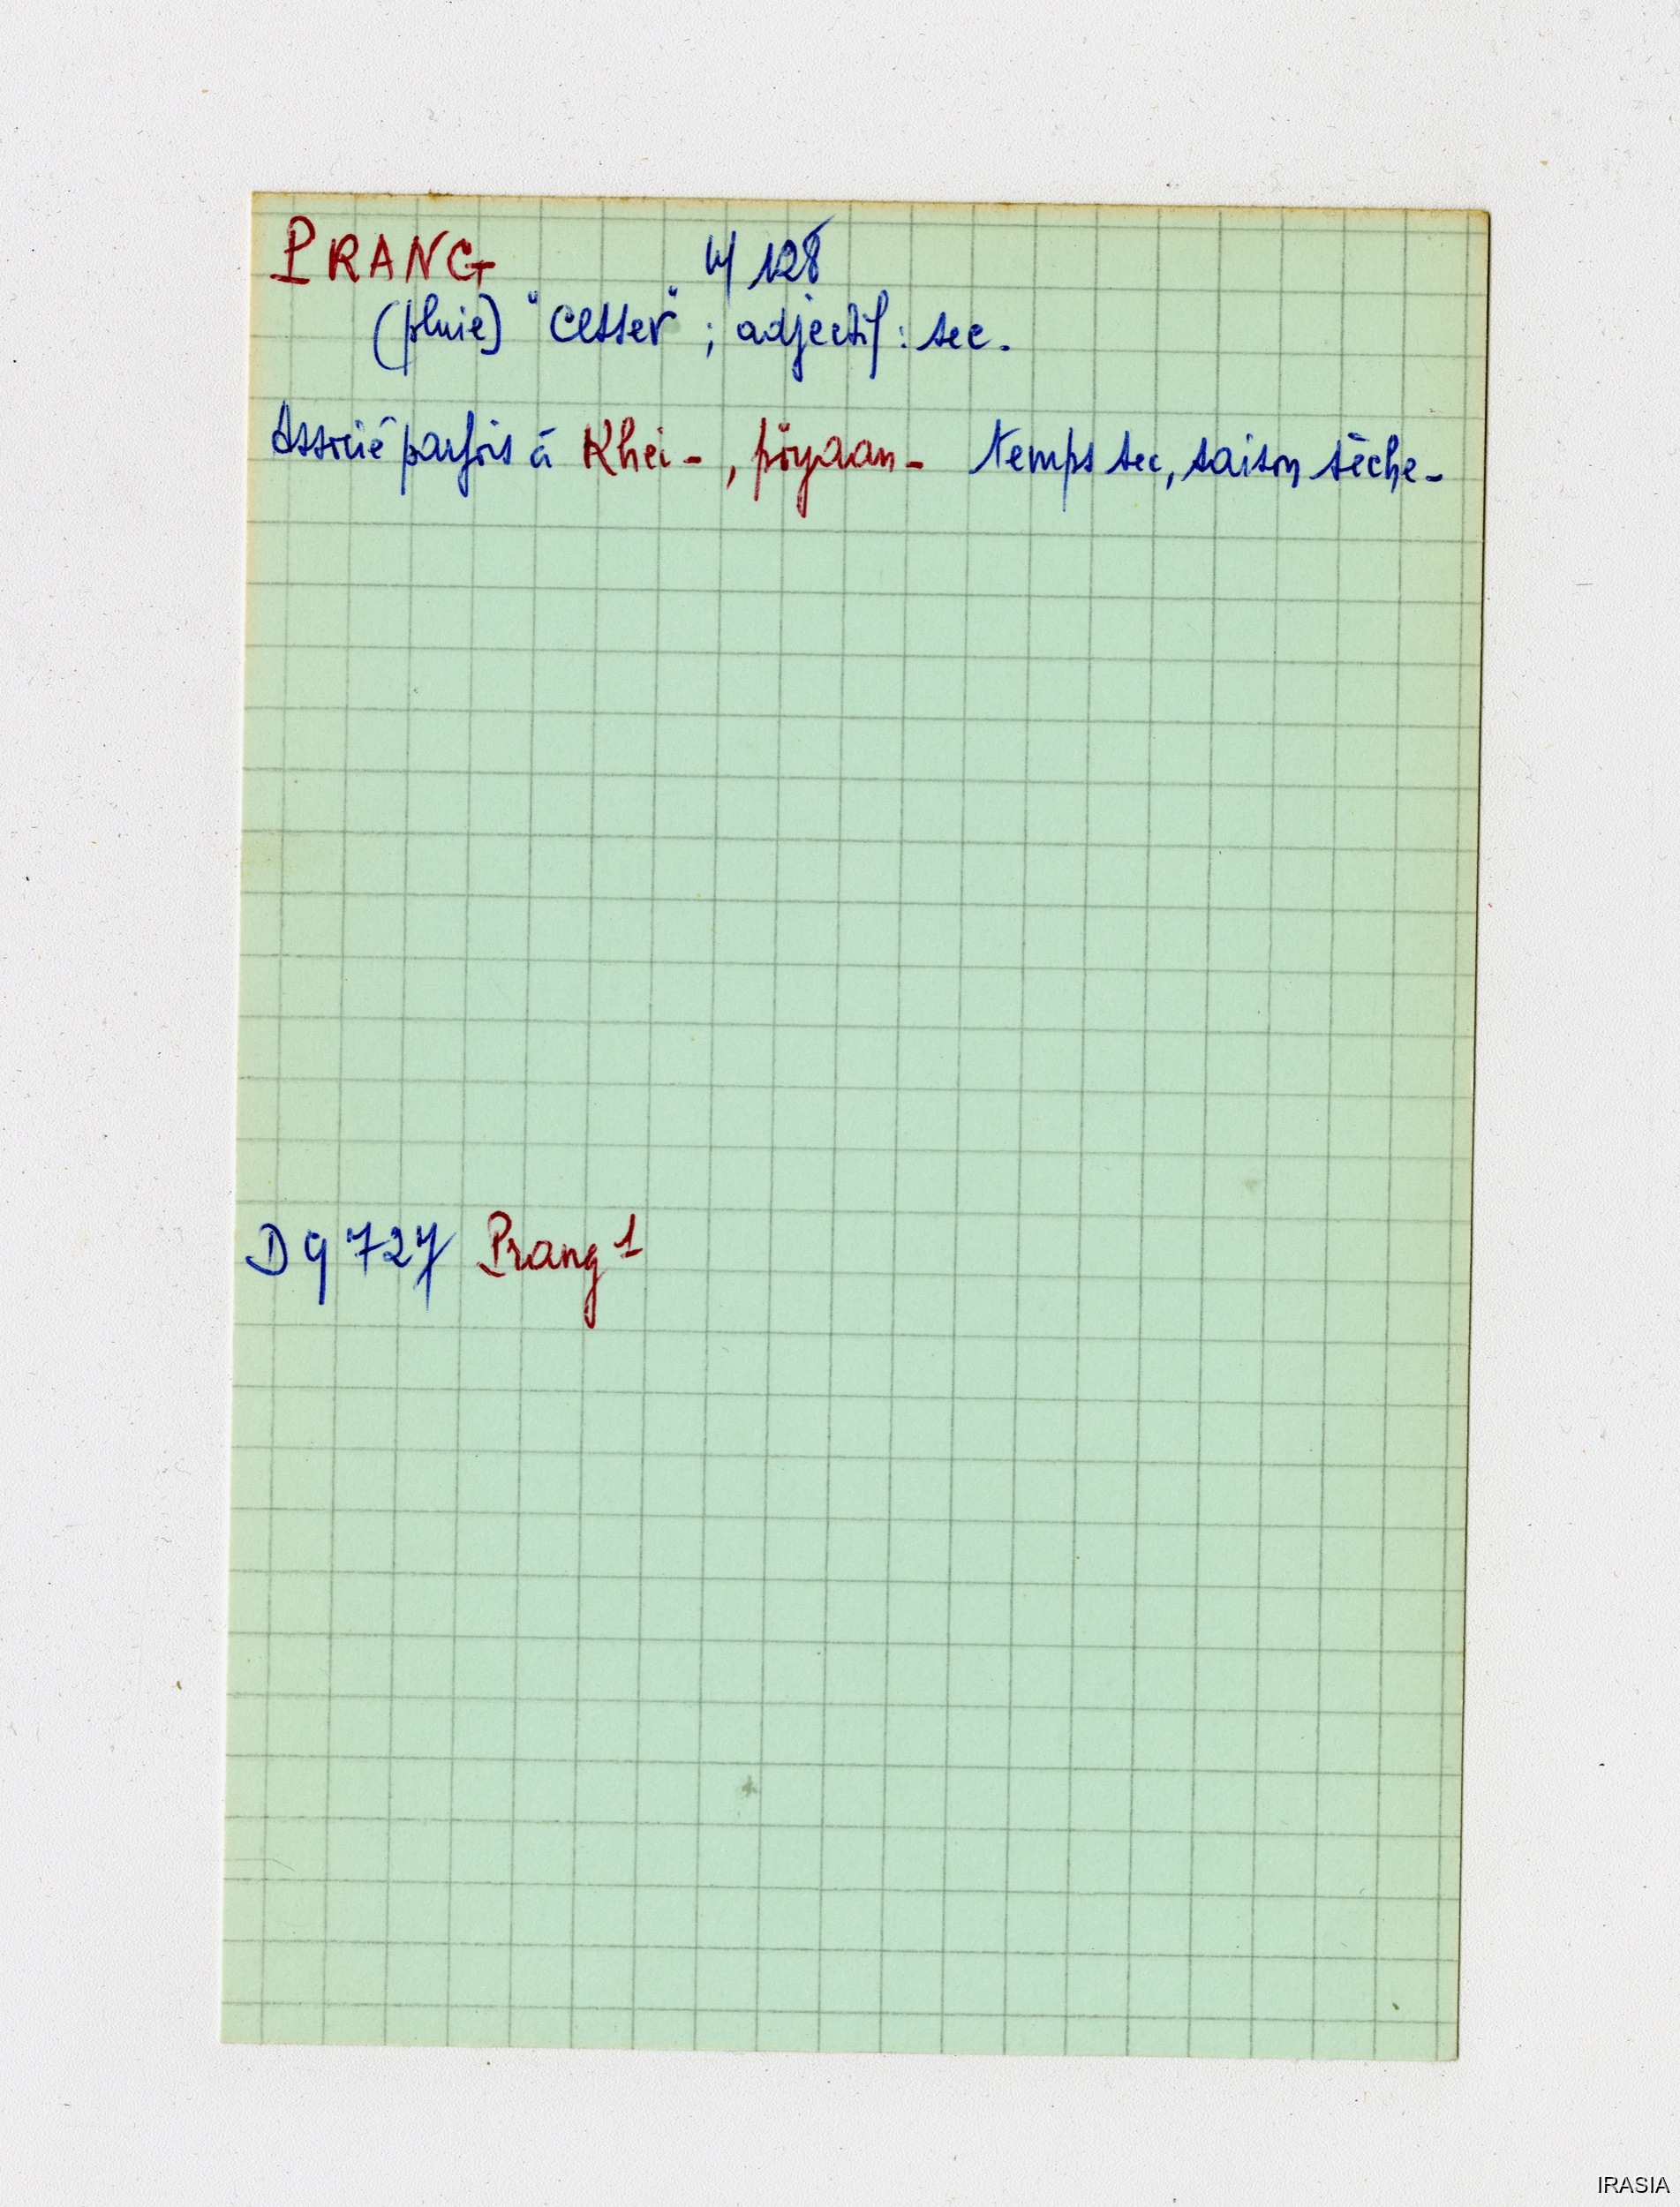 PRANG 4/128
(pluie) "cesser" ; adjectif : sec.
Associé parfois à Khei - , pöyaan - temps sec, saison sèche -
D9 727 Prang 1
IRASIA